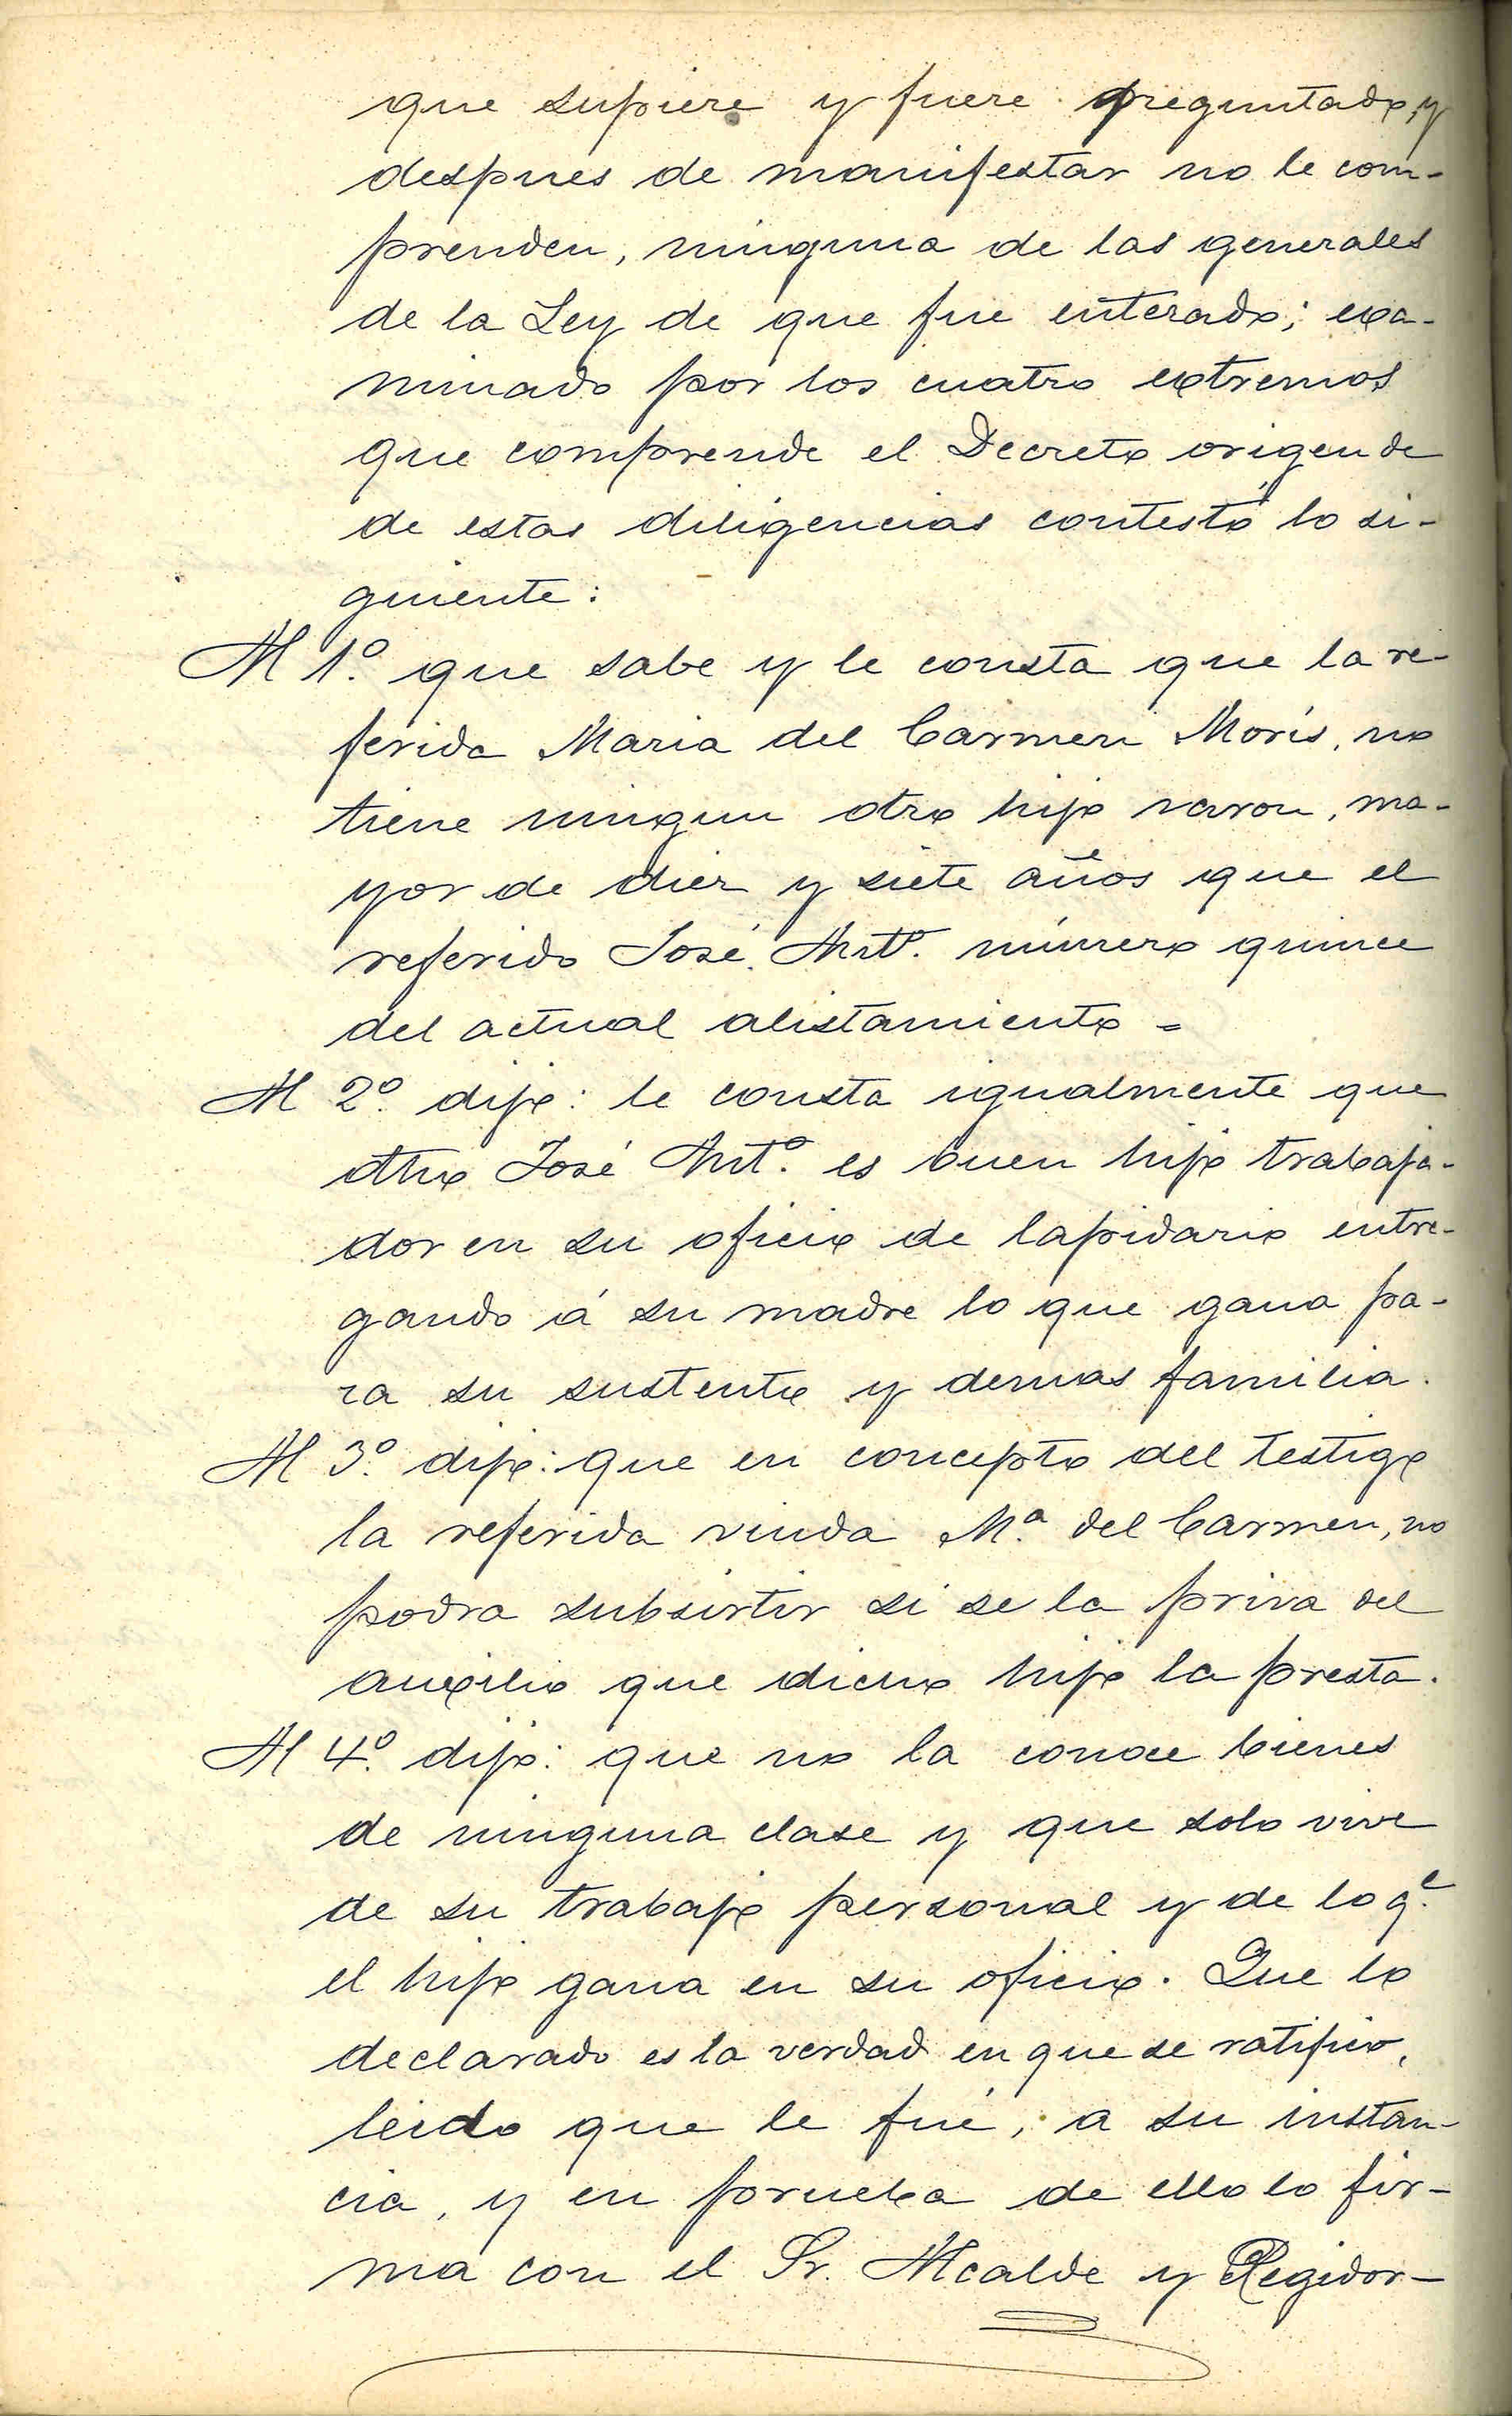 que supiere y fuere preguntado, y
despues de manifestar no le com-
prenden, ninguna de las generales
de la Ley de que fue enterado; exa-
minado por los cuatro extremos
que comprende el Decreto origen de
de estas diligencias contestó lo si-
guiente:
Al 1º. que sabe y le consta que la re-
ferida Maria del Carmen Morís, no
tiene ningun otro hijo varon, ma-
yor de diez y siete años que el
referido José Antº. número quince
del actual alistamiento =
Al 2º. dijo: le consta igualmente que
dho José Antº. es buen hijo trabaja-
dor en su oficio de lapidario entre-
gando á su madre lo que gana pa-
ra su sustento y demas familia.
Al 3º. dijo: que en concepto del testigo
la referida viuda Mª. del Carmen, no
podra subsistir si se la priva del
auxilio que dicho hijo la presta.
Al 4º. dijo: que no la conoce bienes
de ninguna clase y que solo vive
de su trabajo personal y de lo q.e
el hijo gana en su oficio. Que lo
declarado es la verdad en que se ratifico,
leido que le fué, a su instan-
cia, y en prueba de ello lo fir-
ma con el Sr. Alcalde y Regidor-